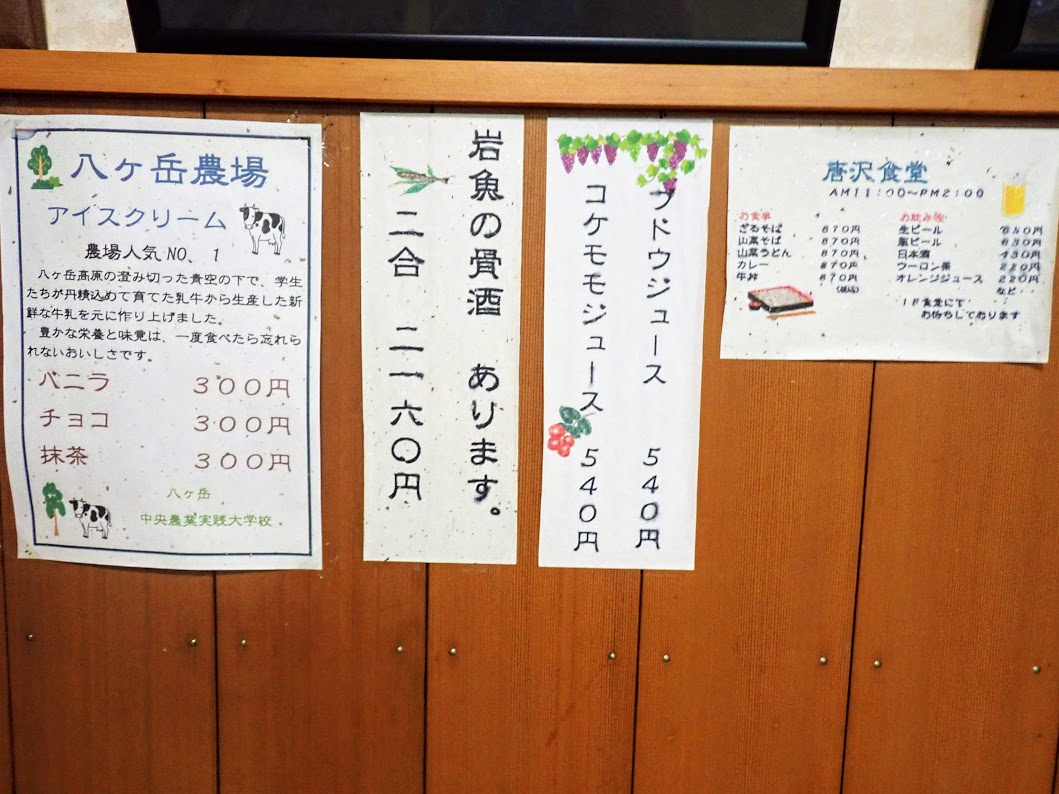 八ヶ岳農場
アイスクリーム
農場人気NO、1
八ヶ岳高原の澄み切った青空の下で、学生
たちが丹積込めて育てた乳牛から生産した新
鮮な牛乳を元に作り上げました。
豊かな栄養と味覚は、一度食べたら忘れら
れないおいしさです。
バニラ 300円
チョコ 300円
抹茶 300円
八ヶ岳
中央農業実践大学校
岩魚の骨酒 あります。
二合 二一六〇円
ブドウジュース 540円
コケモモジュース 540円
唐沢食堂
AM11:00〜PM2:00
お食事
ざるそば 870円
山菜そば 870円
山菜うどん 870円
カレー 870円
牛丼 870円
(税込)
お飲み物
生ビール
瓶ビール
日本酒
ウーロン茶 220円
オレンジジュース 220円
など
1F食堂にて
お待ちしております